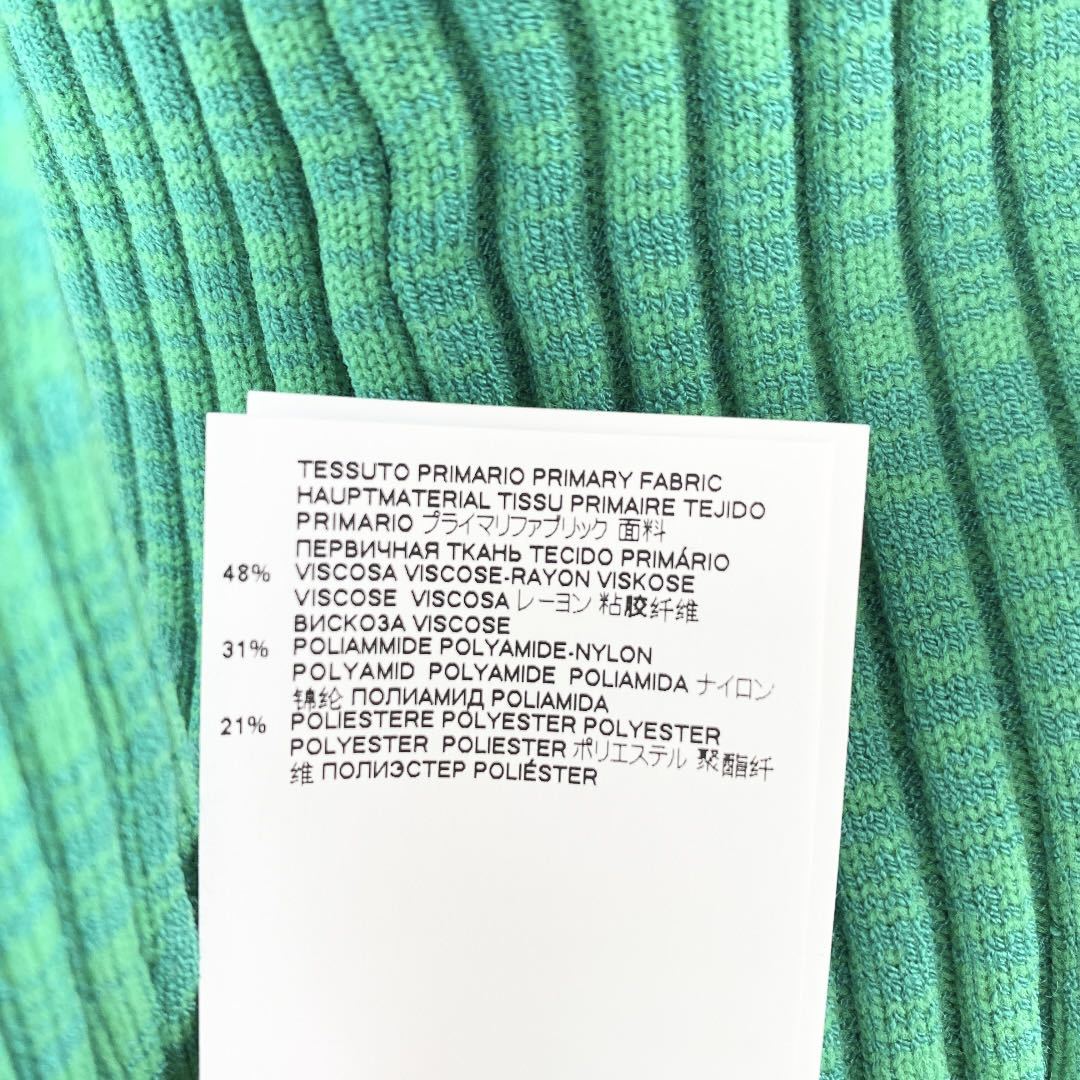 TESSUTO PRIMARIO PRIMARY FABRIC
HAUPTMATERIAL TISSU PRIMAIRE TEJIDO
PRIMARIO プライマリファブリック 面料
ПЕРВИЧНАЯ ТКАНЬ TECIDO PRIMÁRIO
48% VISCOSA VISCOSE-RAYON VISKOSE
VISCOSE VISCOSA レーヨン 粘胶纤维
ВИСКОЗА VISCOSE
31% POLIAMMIDE POLYAMIDE-NYLON
POLYAMID POLYAMIDE POLIAMIDA ナイロン
锦纶 ПОЛИАМИД POLIAMIDA
21% POLIESTERE POLYESTER POLYESTER
POLYESTER POLIESTER ポリエステル 聚酯纤
维 ПОЛИЭСТЕР POLIÉSTER